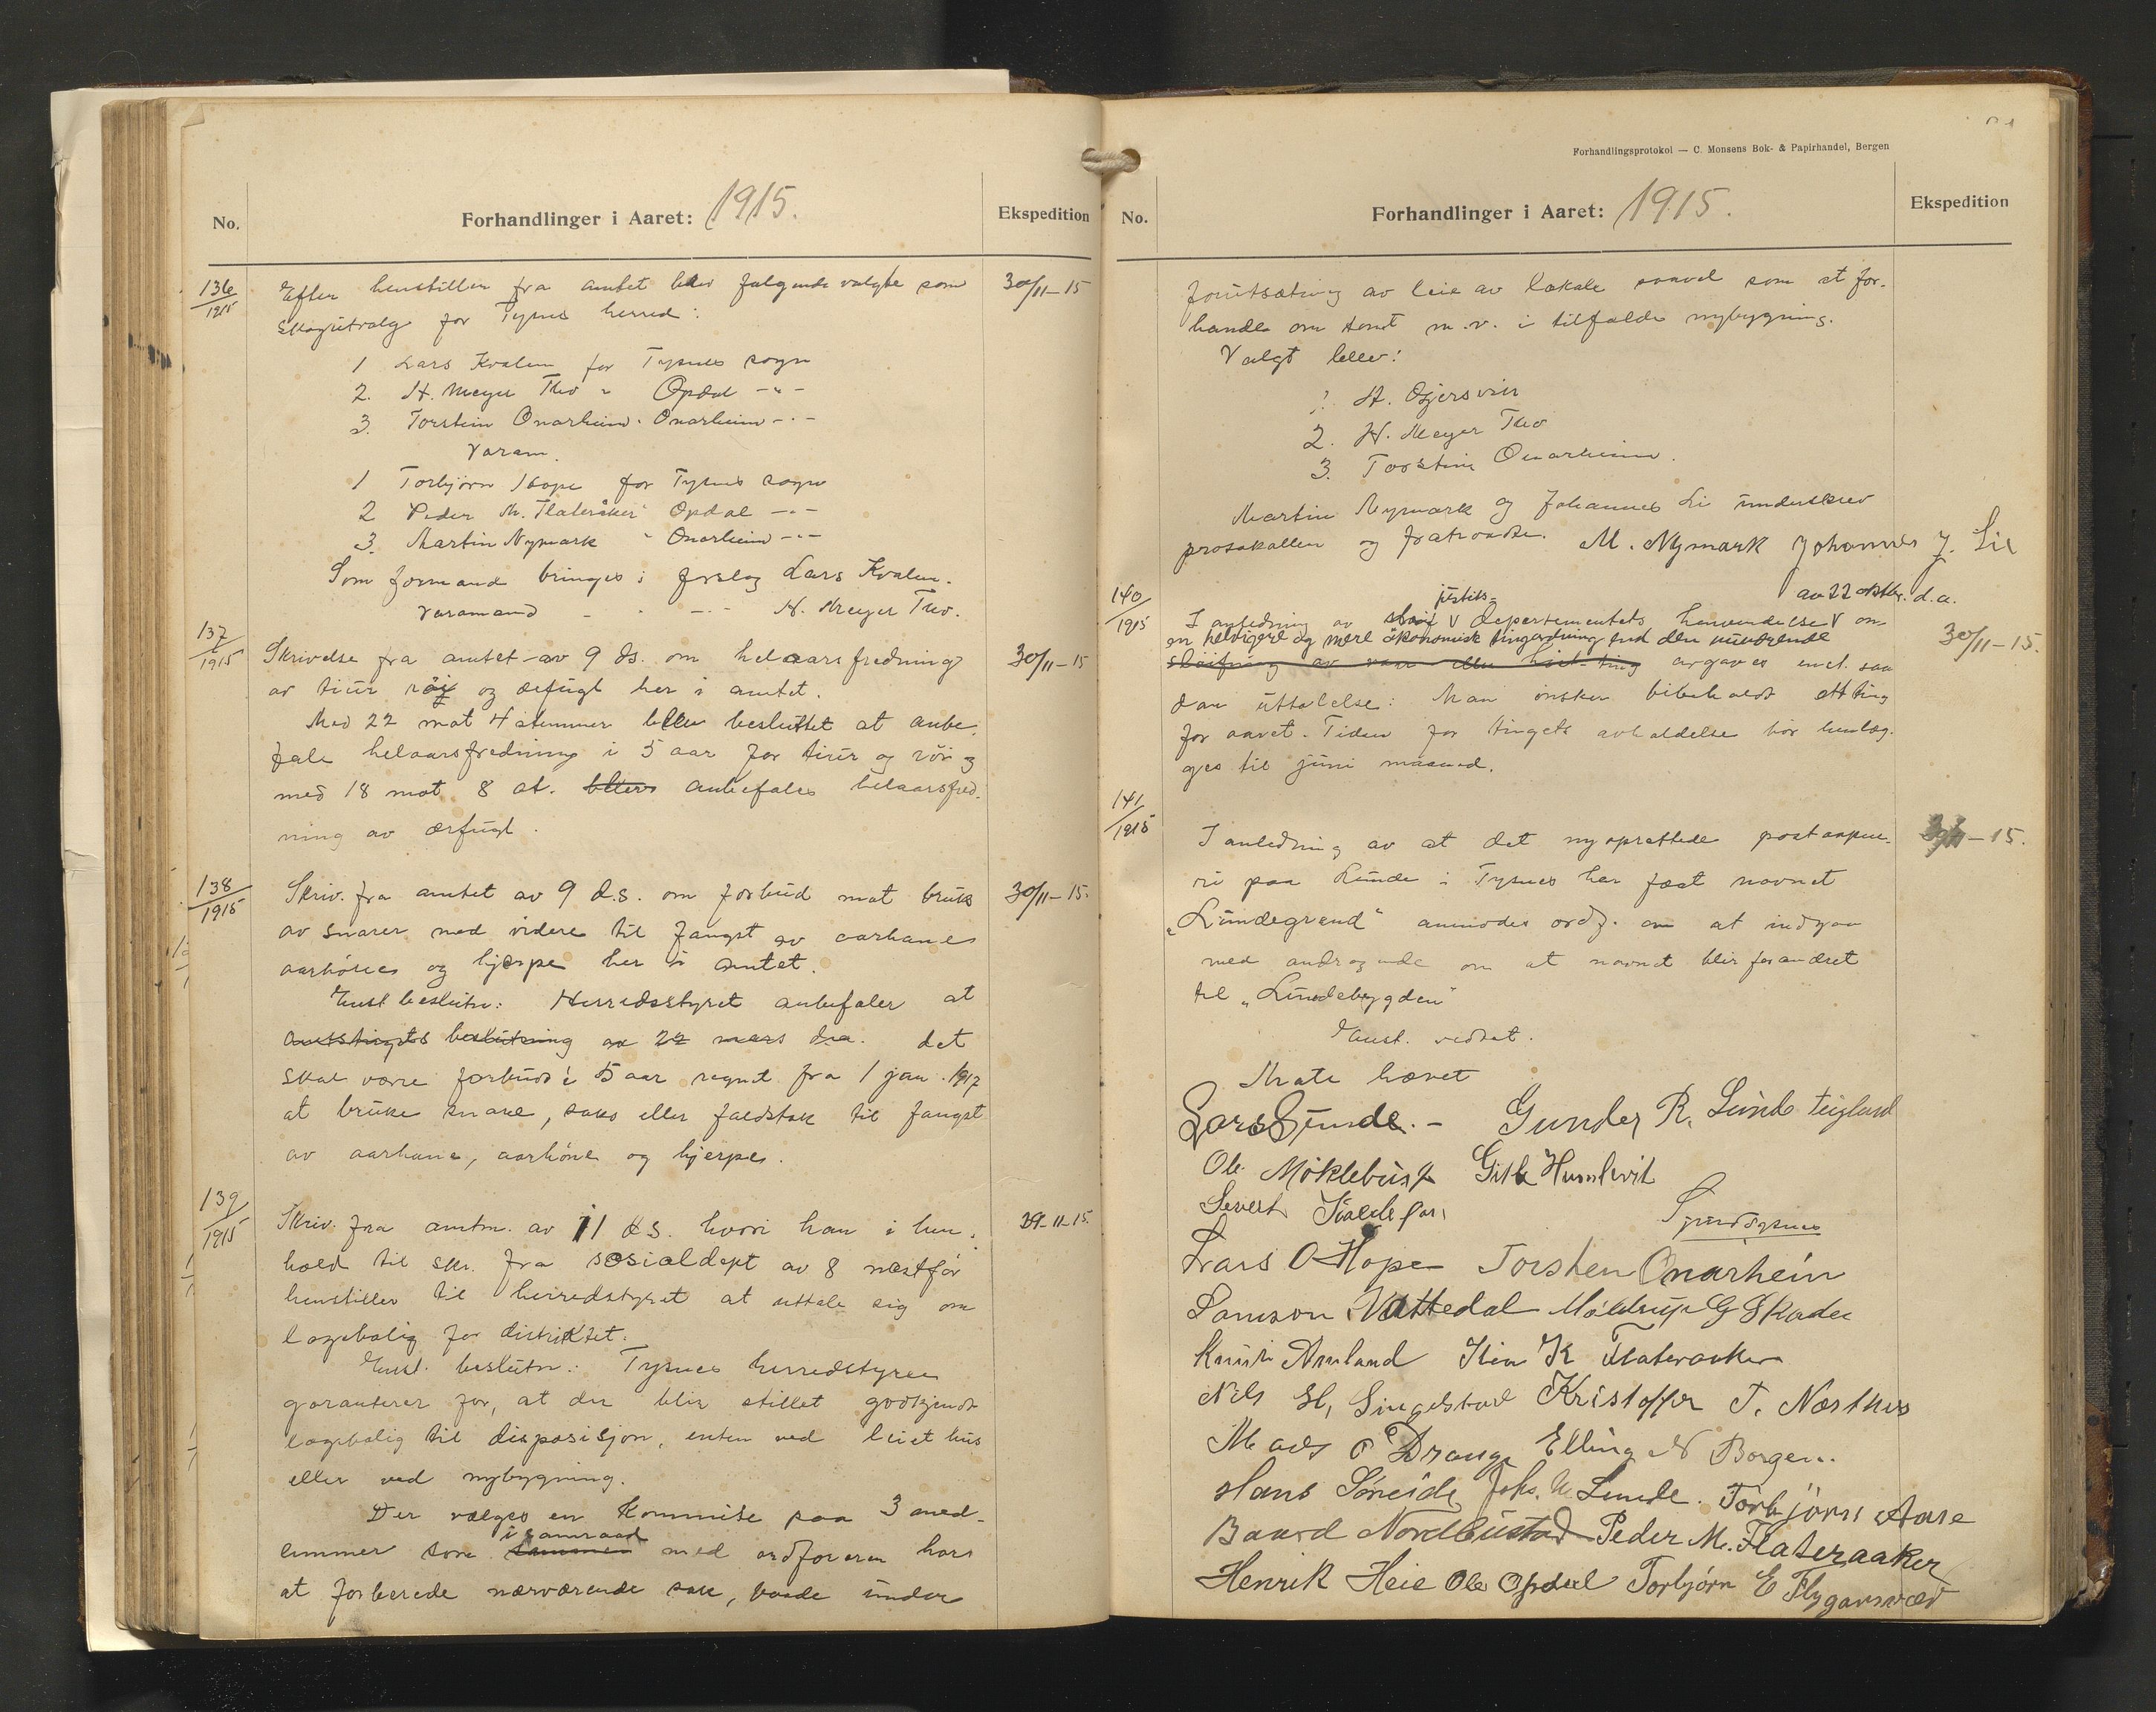 No.
Forhandlinger i Aaret: 1915.
Ekspedition
136/1915
Efter henstillen fra amtet blev følgende valgte som
30/11-15
skogutvalg for Tysnes herred:
1 Lars Kvalen for Tysnes sogn
2. H. Meyer Thvo " Opdal - " -
3. Torstein Onarheim " Onarheim - " -
Varam.
1 Torbjørn Hope for Tysnes sogn
2 Peder M. Flateråker " Opdal - " -
3. Martin Nymark " Onarheim - " -
Som formand bringes i forslag Lars Kvalen.
Varamand - " - " - H. Meyer Thvo.
137/1915
Skrivelse fra amtet av 9 ds. om helaarsfredning
30/11-15
av tiur røi og ærfugl her i amtet.
Med 22 mot 4 stemmer blev besluttet at anbe-
fale helaarsfredning i 5 aar for tiur og röi og
med 18 mot 8 st. blev anbefales helaarsfred-
ning av ærfugl.
138/1915
Skriv. fra amtet av 9 d.s. om forbud mot bruk
30/11-15.
av snarer med videre til fangst av aarhane
aarhöne og hjerpe her i amtet.
Enst beslutn: Herredsstyret anbefaler at
amtstingets beslutning av 22 mars d.a. det
skal være forbud i 5 aar regnet fra 1 jan. 1917
at bruke snare, saks eller faldstok til fangst
av aarhane, aarhöne og hjerpe.
139/1915
Skriv. fra amtm. av 11 ds. hvori han i hen-
29-11-15.
hold til skr. fra sosialdept av 8 næstfør
henstiller til herredstyret at uttale sig om
lægebolig for distriktet.
Enst. beslutn.: Tysnes herredstyre
garanterer for, at der blir stillet godkjendt
lægebolig til disposisjon, enten ved leiet hus
eller ved nybygning.
Der vælges en kommite paa 3 med-
i samraad
lemmer som sammen med ordføreren har
at forberede nærværende sak, baade under
Forhandlingsprotokol — C. Monsens Bok- & Papirhandel, Bergen
No.
Forhandlinger i Aaret: 1915.
Ekspedition
forutsætning av leie av lokale saavel som at for-
handle om tomt m.v. i tilfælde nybygning.
Valgt blev:
1. A. Gjersvik
2. H. Meyer Thvo
3. Torstein Onarheim.
Martin Nymark og Johannes Li underskrev
protokollen og fratraadte. M. Nymark Johannes J. Lie
140/1915
justits-
av 22 oktbr. d.a.
I anledning av departementets henvendelse om
en heldigere og mere økonomisk tingordning end den nuværende
30/11-15.
sløifning av vaar eller høst ting avgaves enst. saa
dan uttalelse: Man ønsker bibeholdt ett ting
for aaret. Tiden for tingets avholdelse bør henlæg-
ges til juni maaned.
141/1915
I anledning av at det nyoprettede postaapne-
30/11-15.
ri paa Lunde i Tysnes har faat navnet
"Lundegrend" anmodes ordf. om at indgaa
med andragende om at navnet blir forandret
til "Lundebygden"
Enst. vedtat.
Møte hævet
Lars Sunde. - Gunder R. Lunde Teigland
Ole Møklebust Gitle Humlevik
Sivert
Lars O Hope Torsten Onarheim
Samson Vattedal Møldrup G Skade
Knut Amland Iver K Flateraaker
Nils H, Singelstad Kristoffer T. Næsthus
Mads O Drange Elling N Borgen.
Hans Søreide Johs. N. Lunde. Torbjørn Aase
Baard Nordbustad Peder M. Flateraaker
Henrik Heie Ole Opdal Torbjørn E Flygansvær